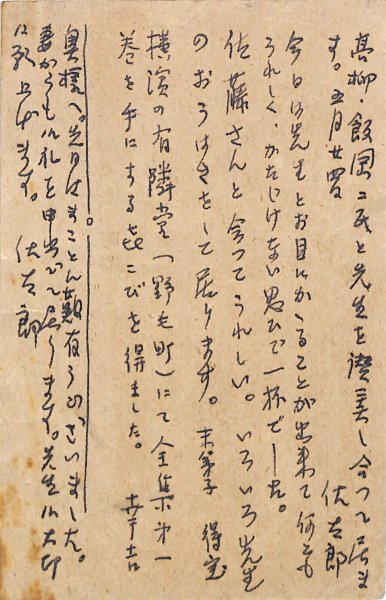 高柳・飯国二氏と先生を讃美し合つて居ま
す。五月廿四 佐太郎
今日は先生とお目にかゝることが出来て何とも
うれしく、かたじけない思ひで一杯でした。
佐藤さんと会つてうれしい。いろいろ先生
のおうはさをして居ります。末弟子 得宝
横濱の有隣堂(野毛町)にて全集第一
巻を手にするよろこびを得ました。 幸吉
奥様へ。先日はまことに有難うございました。
妻からも御礼を申出て居ります。先生御大切
に願上げます。 佐太郎